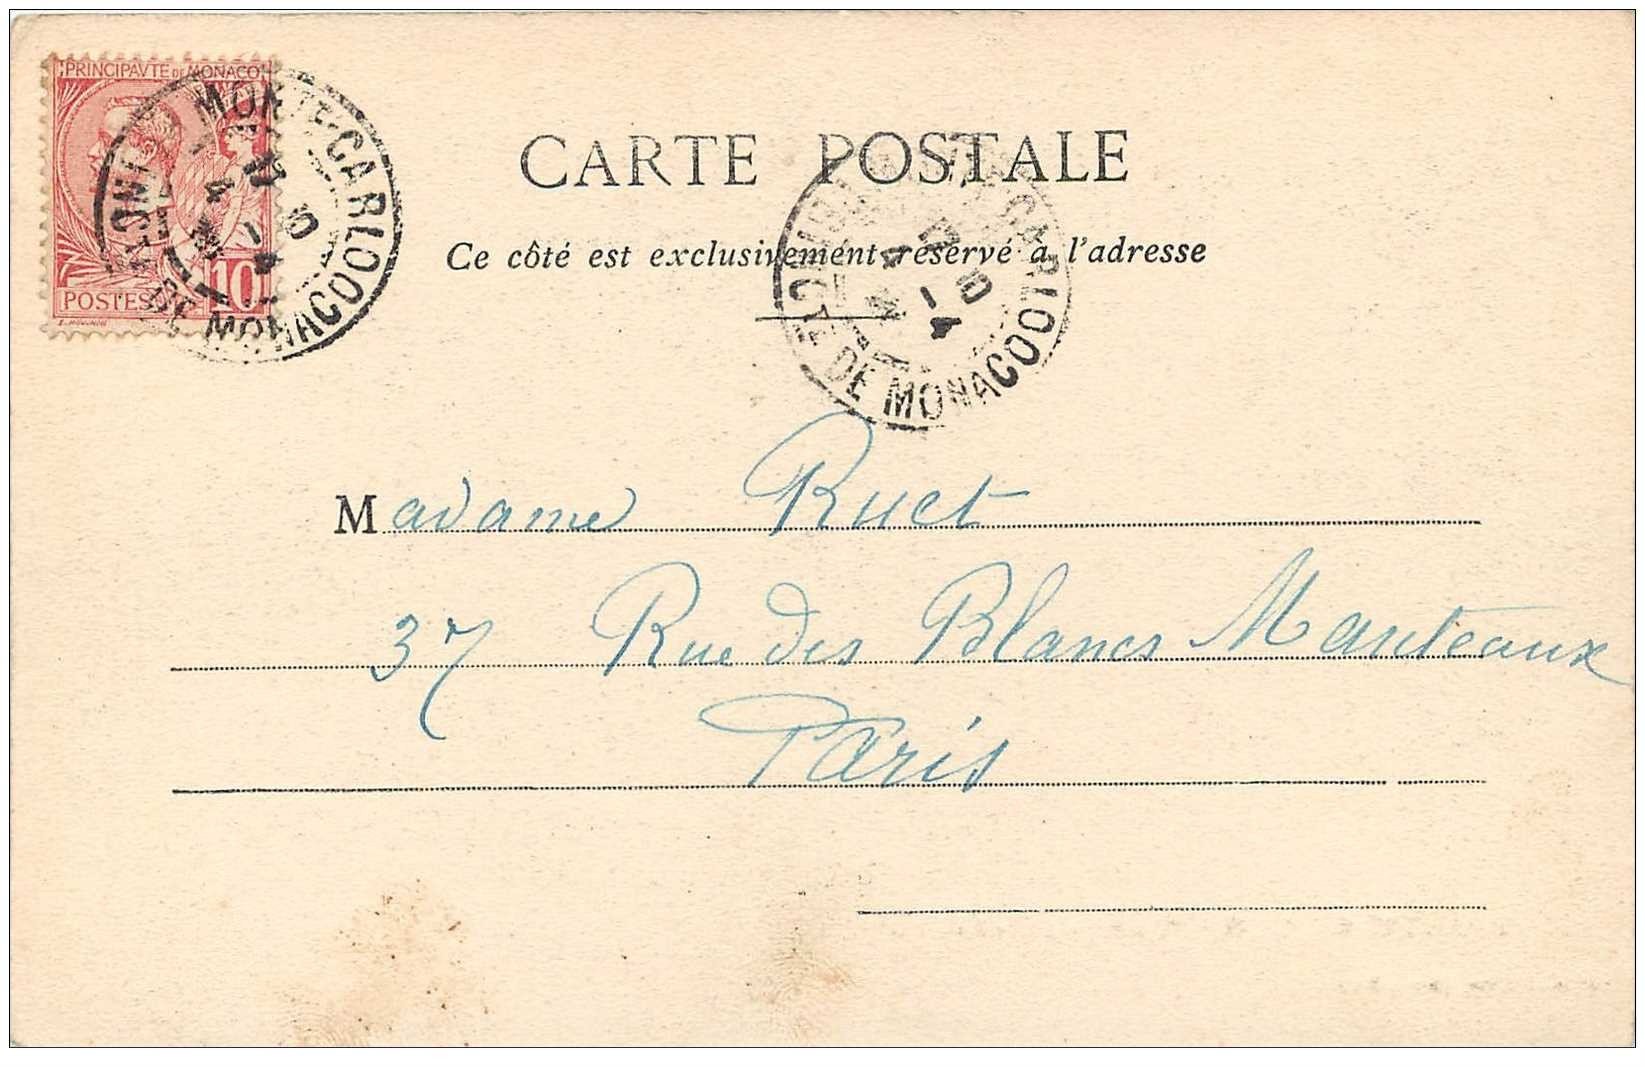 PRINCIPAVTE DE MONACO
POSTES 10
MONTE-CARLO
PTÉ DE MONACO
CARTE POSTALE
Ce côté est exclusivement réservé à l'adresse
MONTE-CARLO
PTÉ DE MONACO
Madame Ruet
37 Rue des Blancs Manteaux
Paris